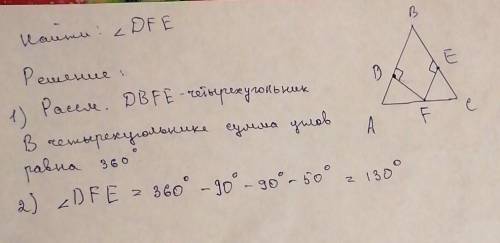 Найти: ∠DFE
Решение:
1) Рассм. DBFE - четырехугольник
В четырехугольнике сумма углов
равна 360°
2) ∠DFE = 360° - 90° - 90° - 50° = 130°
B
B
E
A
F
C